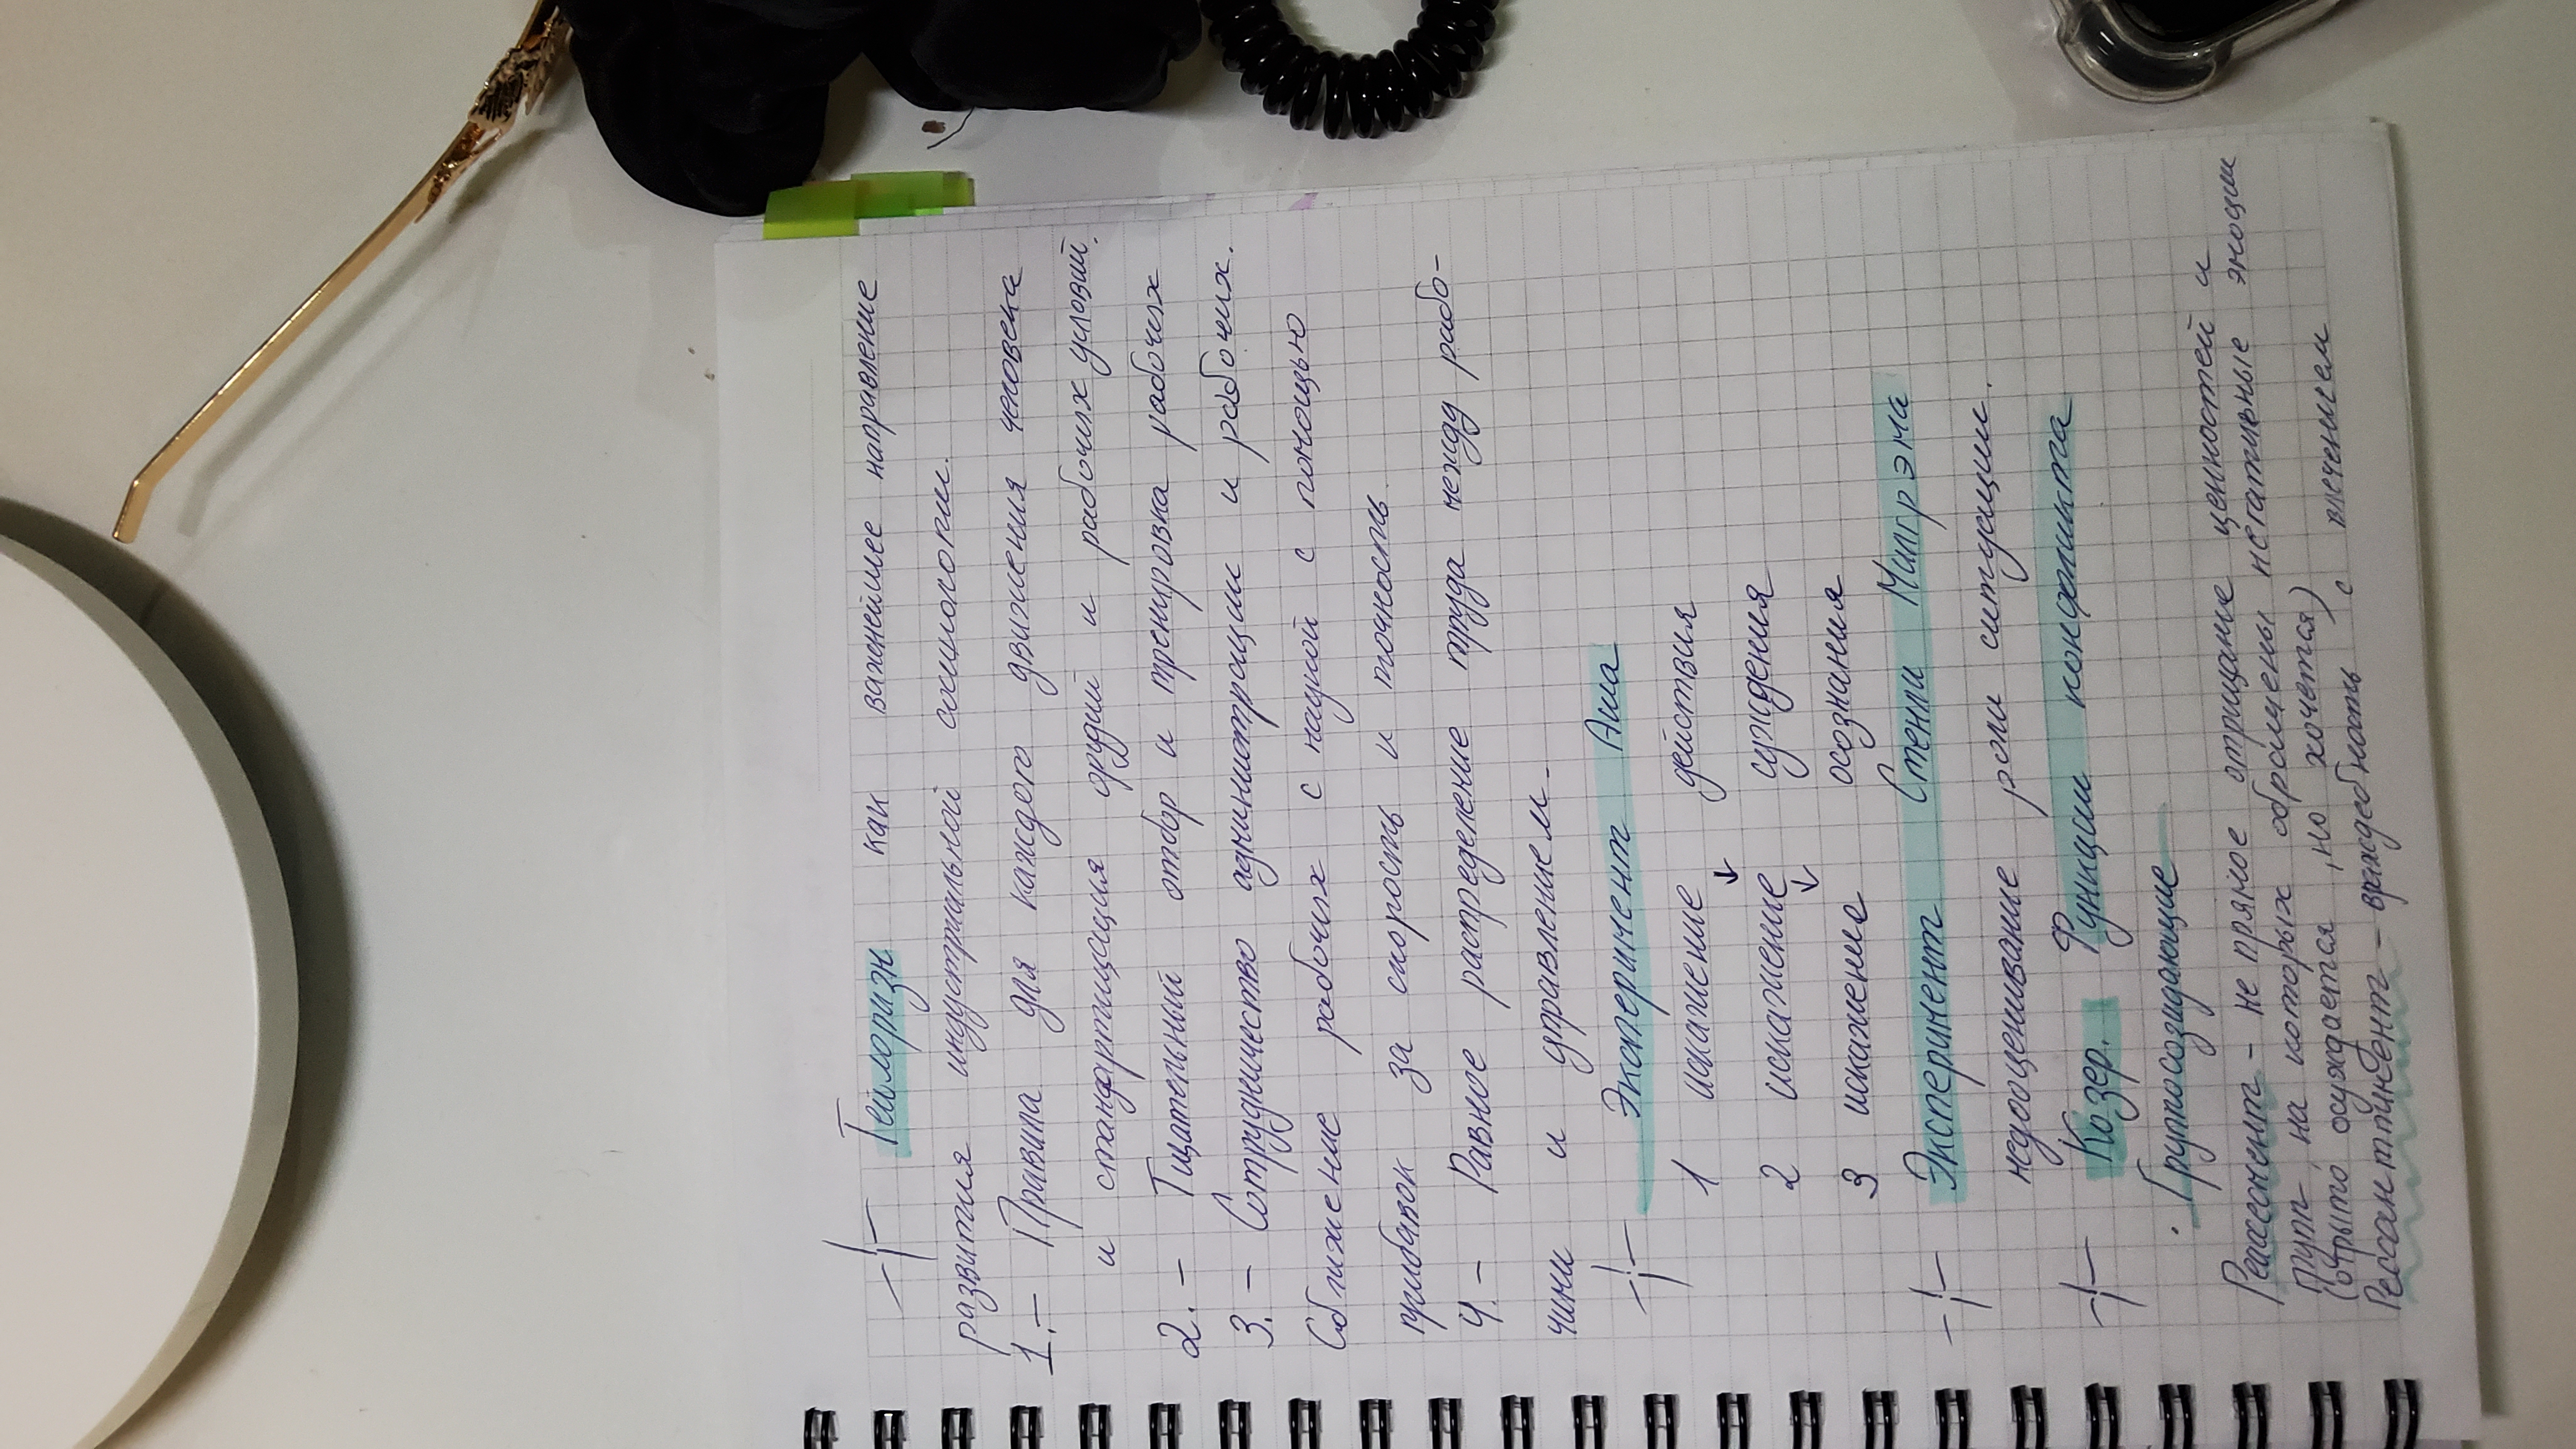 Тейлоризм как важнейшее направление
развития индустриальной социологии.
1. – Правила для каждого движения человека
и стандартизация орудий и рабочих условий.
2. – Тщательный отбор и тренировка рабочих
3. – Сотрудничество администрации и рабочих.
Сближение рабочих с наукой с помощью
прибавок за скорость и точность
4. – Равное распределение труда между рабо-
чими и управлением.
Эксперимент Аша
1 искажение действия
↓
2 искажение суждения
↓
3 искажение осознания
Эксперимент Стенли Милгрэма
недооценивание роли ситуации.
Козер. Функции конфликта
· Группосозидающие
– не прямое отрицание ценностей и
групп на которых обращены негативные эмоции
(открыто осуждается, но хочется)
Рессантимент – враждебность с влечением